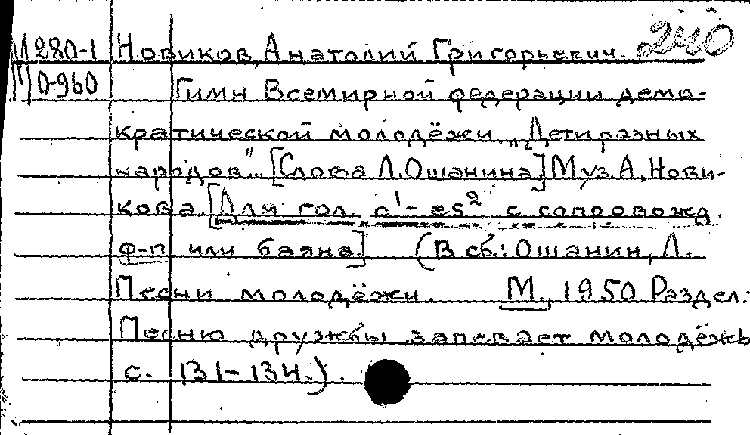 М280-1 Новиков, Анатолий Григорьевич. 240
М0-960 Гимн Всемирной федерации демо-
кратической молодёжи. „Дети разных
народов". [Слова Л. Ошанина] Муз. А. Нови-
кова. [Для гол. c¹-es² с сопровожд.
ф-п или баяна.] (В сб.: Ошанин, Л.
Песни молодёжи. М., 1950. Раздел:
Песню дружбы запевает молодёжь
с. 131-134.).